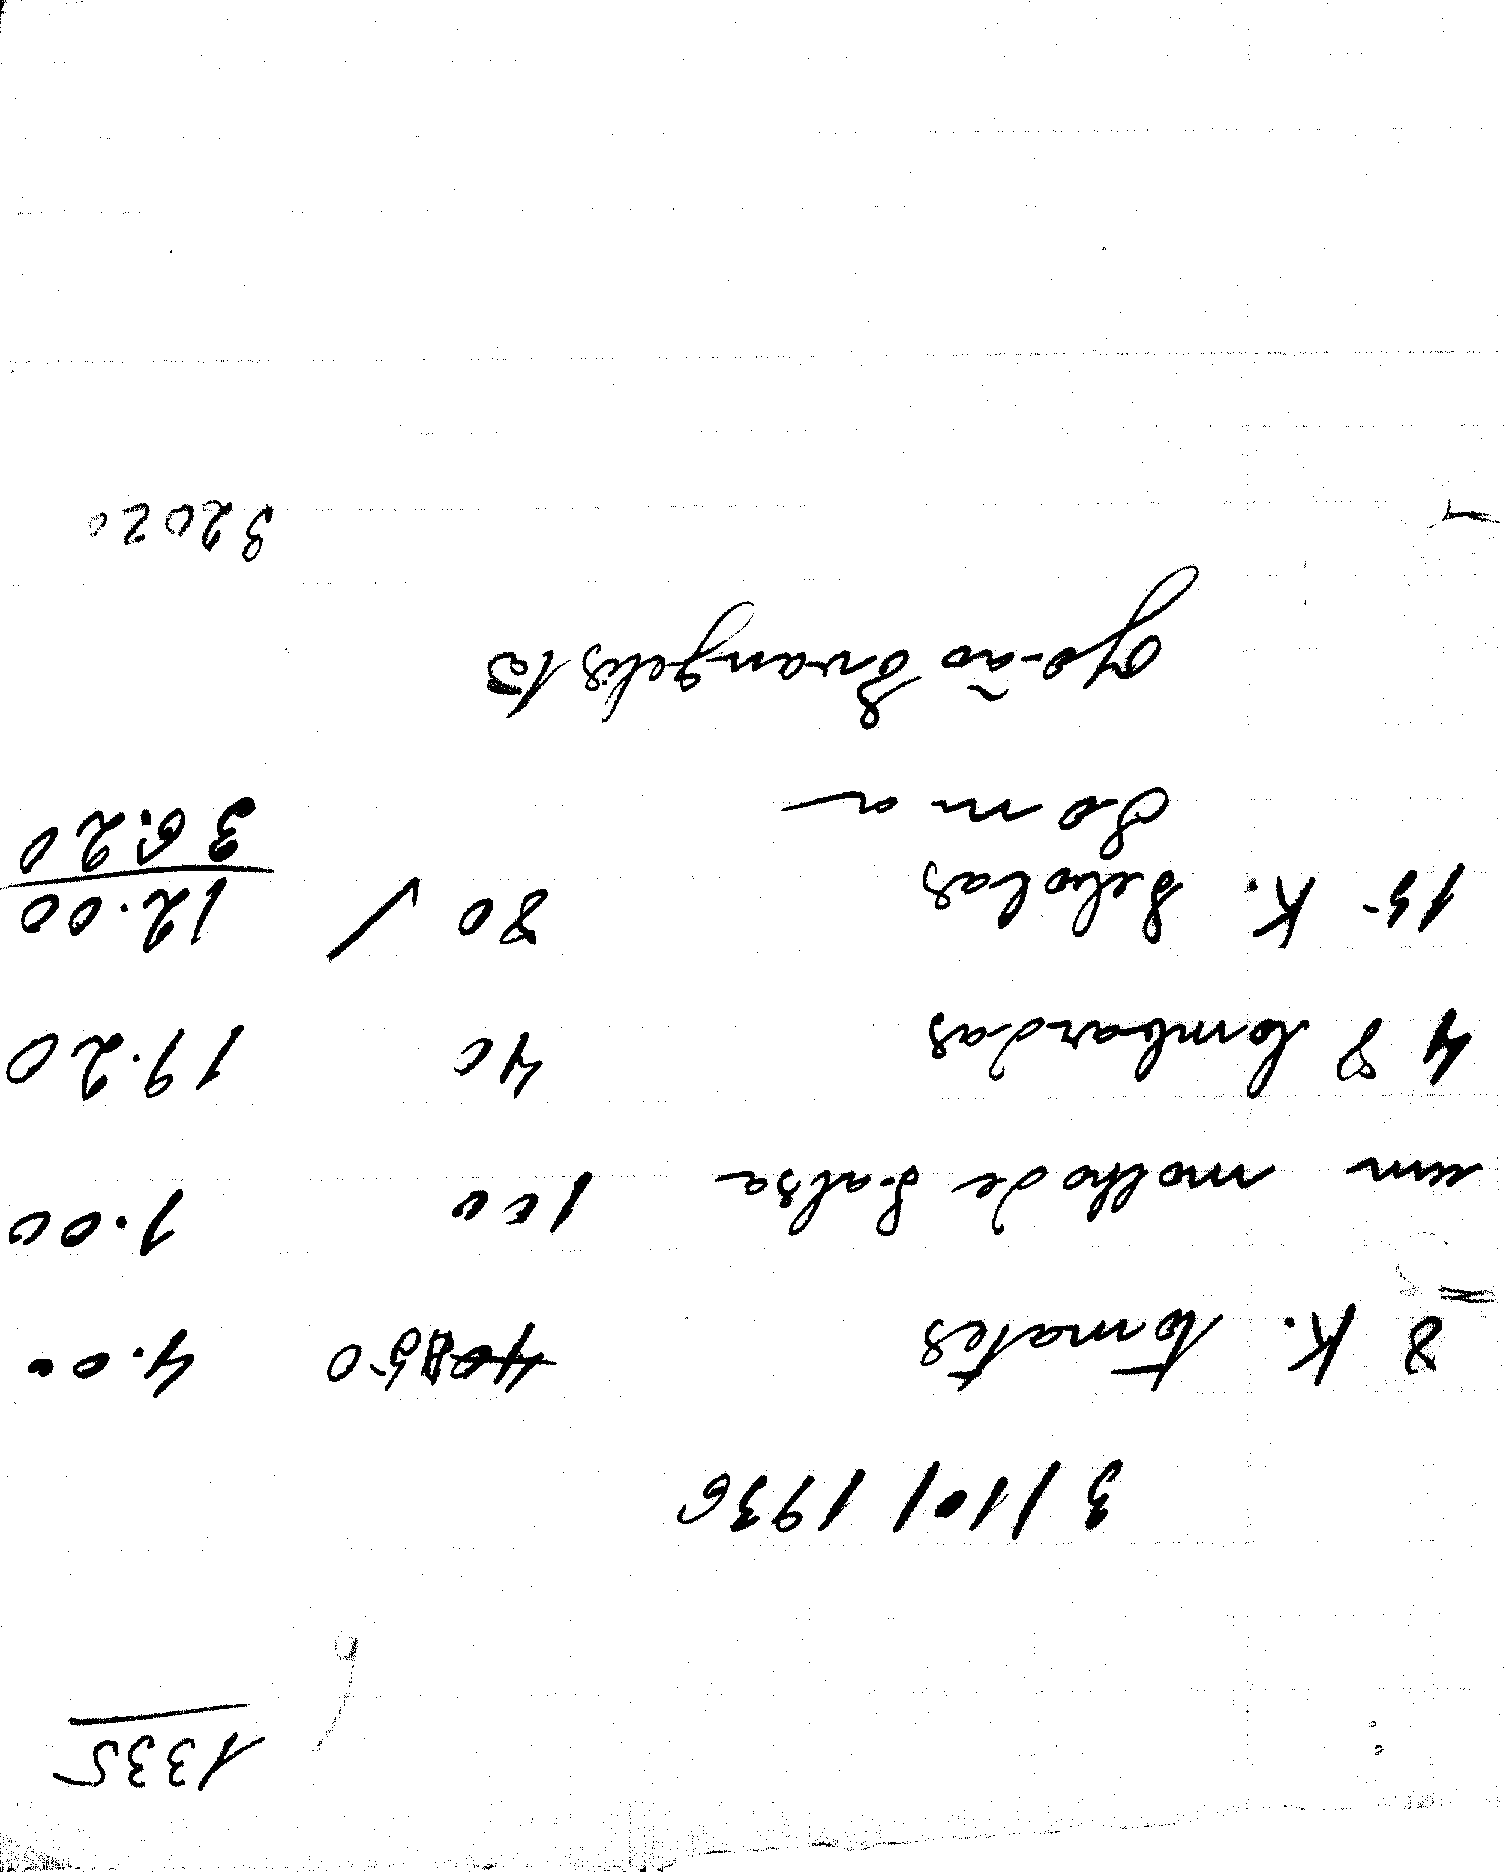 1335
3/10/1936
8 K. tomates 40 850 4.00
um molho de Salsa 100 1.00
48 lombardas 40 19.20
15 K. Sebolas 80 12.00
Soma 36.20
João Evangelista
32020